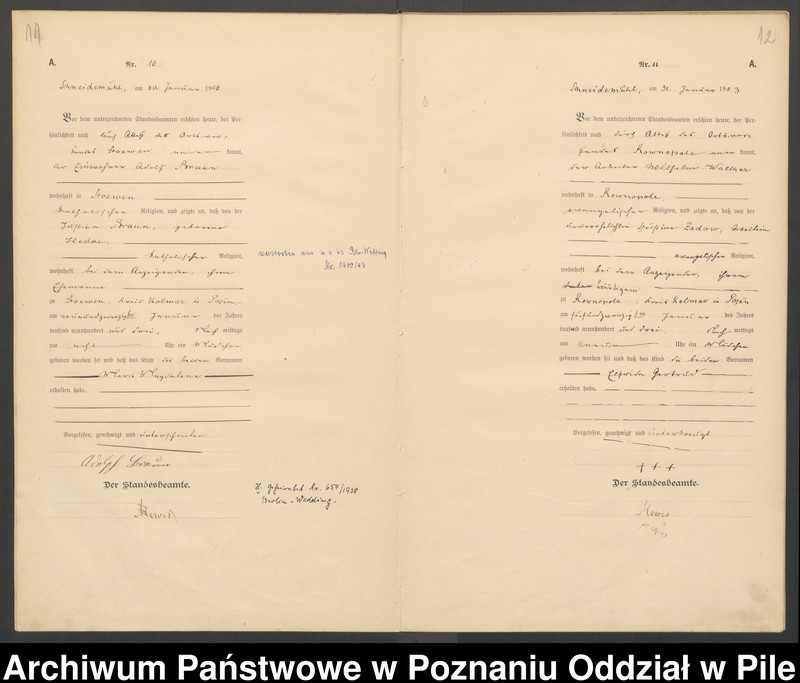 11
A.
Nr. 10
Schneidemühl, am Januar 1903
Vor dem unterzeichneten Standesbeamten erschien heute, der Per-
sönlichkeit nach durch Attest des Ortsvor-
standes Stoewen kannt,
der Einwohner Adolf Braun
wohnhaft in Stoewen
katholischer Religion, und zeigte an, daß von der
Braun, geborene
katholischer Religion,
wohnhaft bei dem Anzeigenden, ihrem
Ehemanne
zu Stoewen, Kreis Kolmar in Posen
am neunundzwanzigsten Januar des Jahres
tausend neunhundert und drei, Nach mittags
um acht Uhr ein Mädchen
geboren worden sei und daß das Kind die beiden Vornamen
Maria Magdalena
erhalten habe.
Vorgelesen, genehmigt und unterschrieben
Adolf Braun
Der Standesbeamte.
Mewis
Nr. 1479/43
H. geheiratet Nr. 657/1938
Berlin-Wedding.
12
Nr. 11
A.
Schneidemühl, am 31. Januar 1903
Vor dem unterzeichneten Standesbeamten erschien heute, der Per-
sönlichkeit nach durch Attest des Ortsvor-
standes Rownopole kannt,
der Arbeiter Wilhelm Wallner
wohnhaft in Rownopole,
evangelischer Religion, und zeigte an, daß von der
unverehelichten Zadow, Arbeiterin
evangelischer Religion,
wohnhaft bei dem Anzeigenden, ihrem
zu Rownopole, Kreis Kolmar in Posen
am fünfundzwanzigsten Januar des Jahres
tausend neunhundert und drei, Nach mittags
um neun Uhr ein Mädchen
geboren worden sei und daß das Kind die beiden Vornamen
Elfrida Gertrud
erhalten habe.
Vorgelesen, genehmigt und unterkreuzt
+ + +
Der Standesbeamte.
Mewis
Archiwum Państwowe w Poznaniu Oddział w Pile